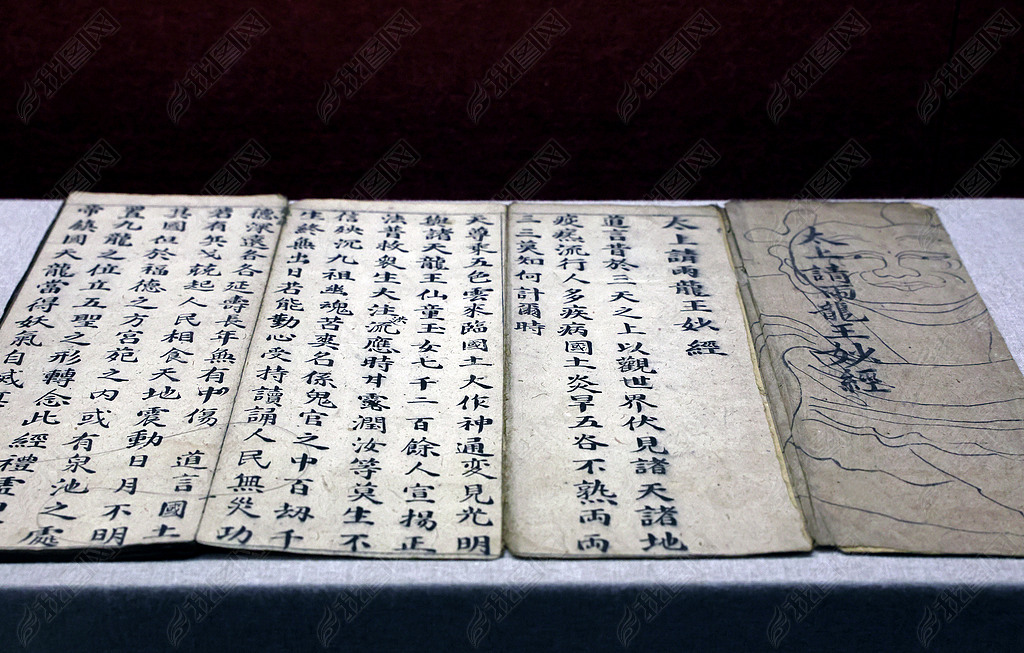 太上請雨龍王妙經
太上請雨龍王妙經
道言昔於三天之上以觀世界伏見諸天諸地
疫癘流行人多疾病國土炎旱五谷不熟兩兩
三三莫知何計爾時
天尊乘五色雲來臨國土大作神通變見光明
與諸天龍王仙童玉女七千二百餘人宣揚正
法普救衆生大注洪流應時甘露潤汝等莫生不
信缺沉九祖幽魂苦爽名係鬼官之中百劫千
生終無出日若能勤心受持讀誦人民無災功
德深遠各各延壽長年無有中傷 道言國土
若有兵戈競起人民相食天地震動日月不明
其國但於福德之方宮苑之內或有泉池之處
置九龍之位立五聖之形轉念此經禮
帝鎮國天龍當得妖氣自滅
我图网